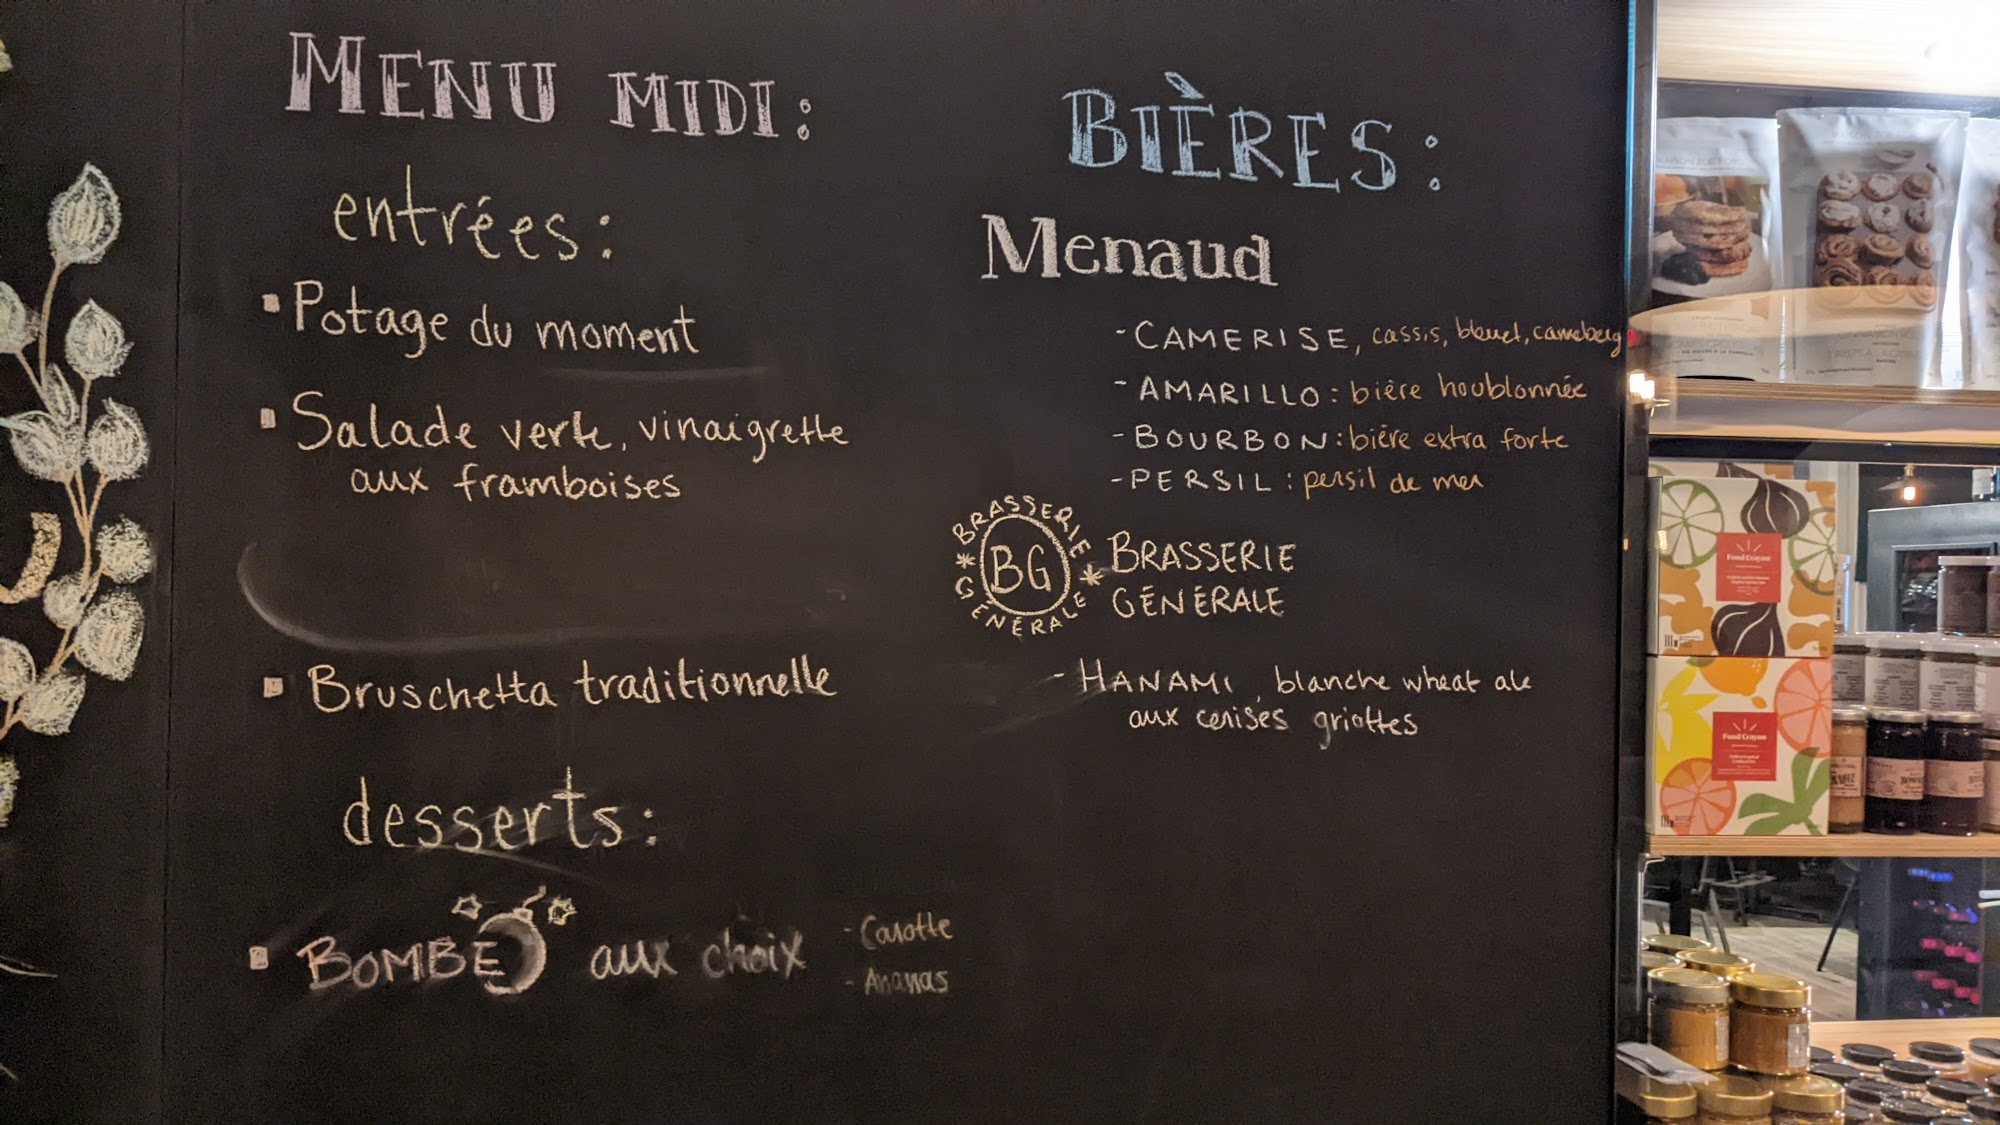 MENU MIDI :
entrées :
▪ Potage du moment
▪ Salade verte, vinaigrette
aux framboises
▪ Bruschetta traditionnelle
desserts :
▪ BOMBE aux choix
- Carotte
- Ananas
BIÈRES :
Menaud
- CAMERISE, cassis, bleuet,
- AMARILLO : bière houblonnée
- BOURBON : bière extra forte
- PERSIL : persil de mer
BRASSERIE
BG
GÉNÉRALE
BRASSERIE
GÉNÉRALE
- HANAMI, blanche wheat ale
aux cerises griottes
Food Crayon
Food Crayon